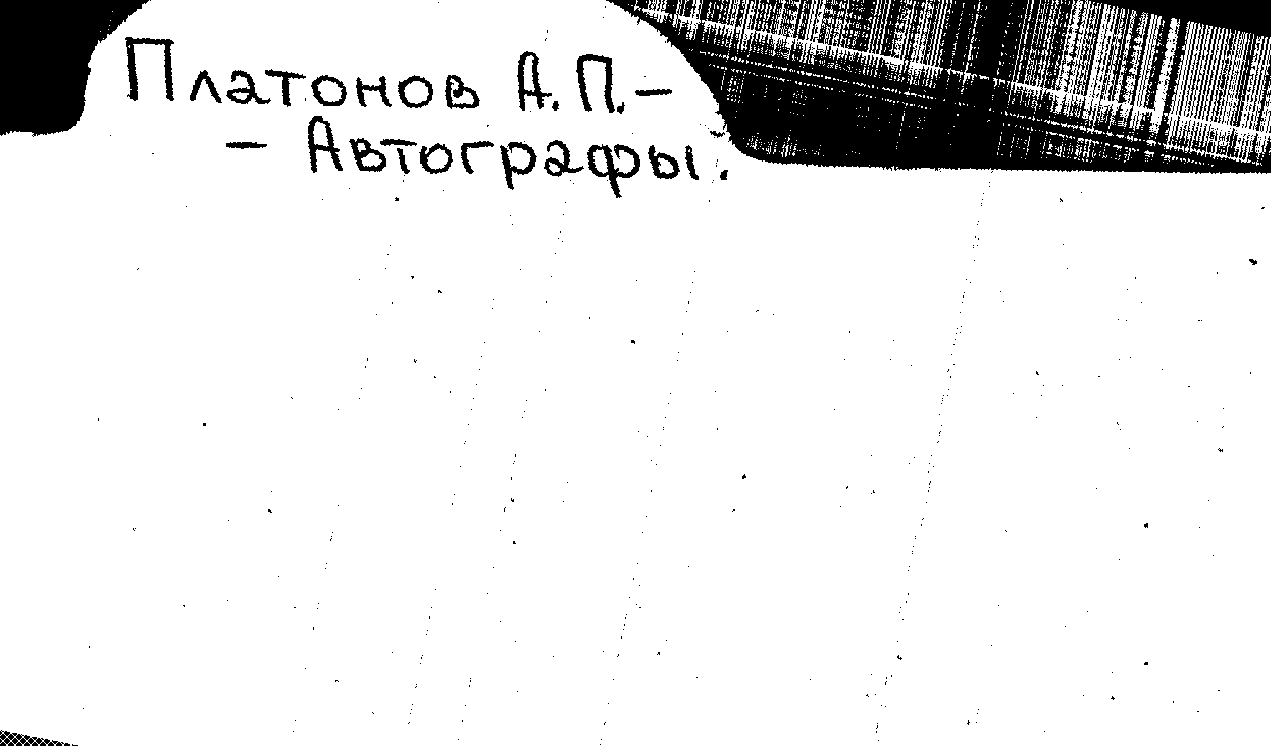 Платонов А.П.—
— Автографы.